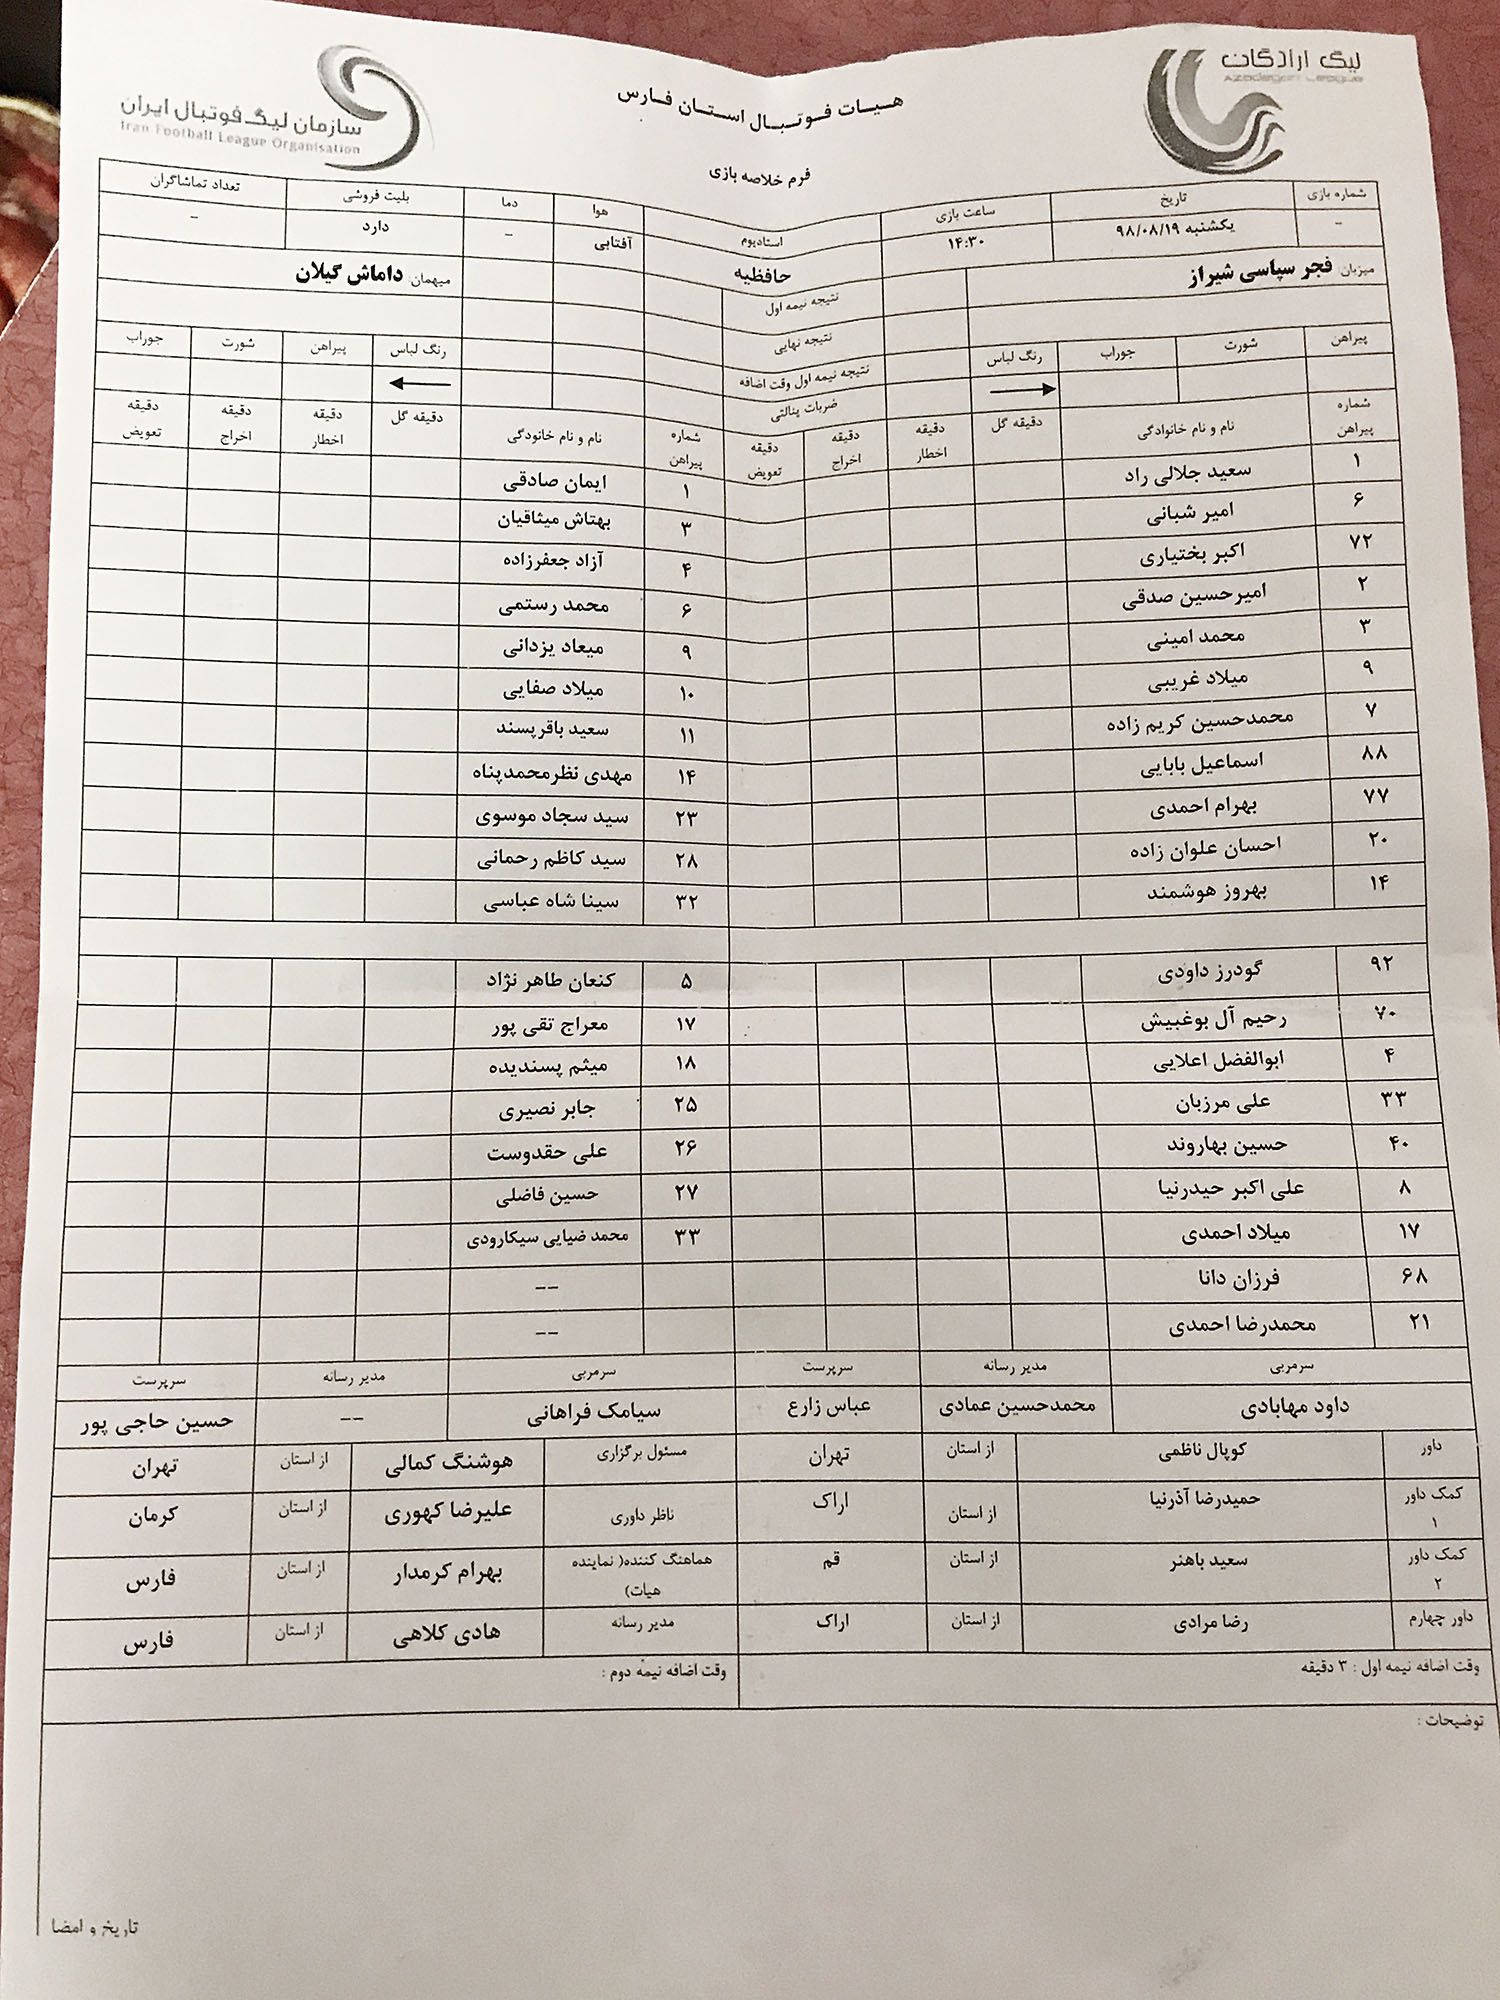 لیگ آزادگان
Azadegan League
سازمان لیگ فوتبال ایران
Iran Football League Organisation
هیات فوتبال استان فارس
فرم خلاصه بازی
شماره بازی تاریخ ساعت بازی استادیوم هوا دما بلیت فروشی تعداد تماشاگران
- یکشنبه ۹۸/۰۸/۱۹ ۱۴:۳۰ حافظیه آفتابی - دارد -
میزبان: فجر سپاسی شیراز میهمان: داماش گیلان
نتیجه نیمه اول
نتیجه نهایی
نتیجه نیمه اول وقت اضافه
ضربات پنالتی
پیراهن شورت جوراب رنگ لباس رنگ لباس پیراهن شورت جوراب
شماره پیراهن نام و نام خانوادگی دقیقه گل دقیقه اخطار دقیقه اخراج دقیقه تعویض شماره پیراهن نام و نام خانودگی دقیقه گل دقیقه اخطار دقیقه اخراج دقیقه تعویض
۱ سعید جلالی راد ۱ ایمان صادقی
۶ امیر شبانی ۳ بهتاش میثاقیان
۷۲ اکبر بختیاری ۴ آزاد جعفرزاده
۲ امیرحسین صدقی ۶ محمد رستمی
۳ محمد امینی ۹ میعاد یزدانی
۹ میلاد غریبی ۱۰ میلاد صفایی
۷ محمدحسین کریم زاده ۱۱ سعید باقرپسند
۸۸ اسماعیل بابایی ۱۴ مهدی نظرمحمدپناه
۷۷ بهرام احمدی ۲۳ سید سجاد موسوی
۲۰ احسان علوان زاده ۲۸ سید کاظم رحمانی
۱۴ بهروز هوشمند ۳۲ سینا شاه عباسی
۹۲ گودرز داودی ۵ کنعان طاهر نژاد
۷۰ رحیم آل بوغبیش ۱۷ معراج تقی پور
۴ ابوالفضل اعلایی ۱۸ میثم پسندیده
۳۳ علی مرزبان ۲۵ جابر نصیری
۴۰ حسین بهاروند ۲۶ علی حقدوست
۸ علی اکبر حیدرنیا ۲۷ حسین فاضلی
۱۷ میلاد احمدی ۳۳ محمد ضیایی سیکارودی
۶۸ فرزان دانا --
۲۱ محمدرضا احمدی --
سرمربی مدیر رسانه سرپرست سرمربی مدیر رسانه سرپرست
داود مهابادی محمدحسین عمادی عباس زارع سیامک فراهانی -- حسین حاجی پور
داور کوپال ناظمی از استان تهران مسئول برگزاری هوشنگ کمالی از استان تهران
کمک داور ۱ حمیدرضا آذرنیا از استان اراک ناظر داوری علیرضا کهوری از استان کرمان
کمک داور ۲ سعید باهنر از استان قم هماهنگ کننده( نماینده هیات) بهرام کرمدار از استان فارس
داور چهارم رضا مرادی از استان اراک مدیر رسانه هادی کلاهی از استان فارس
وقت اضافه نیمه اول : ۳ دقیقه وقت اضافه نیمه دوم :
توضیحات :
تاریخ و امضا